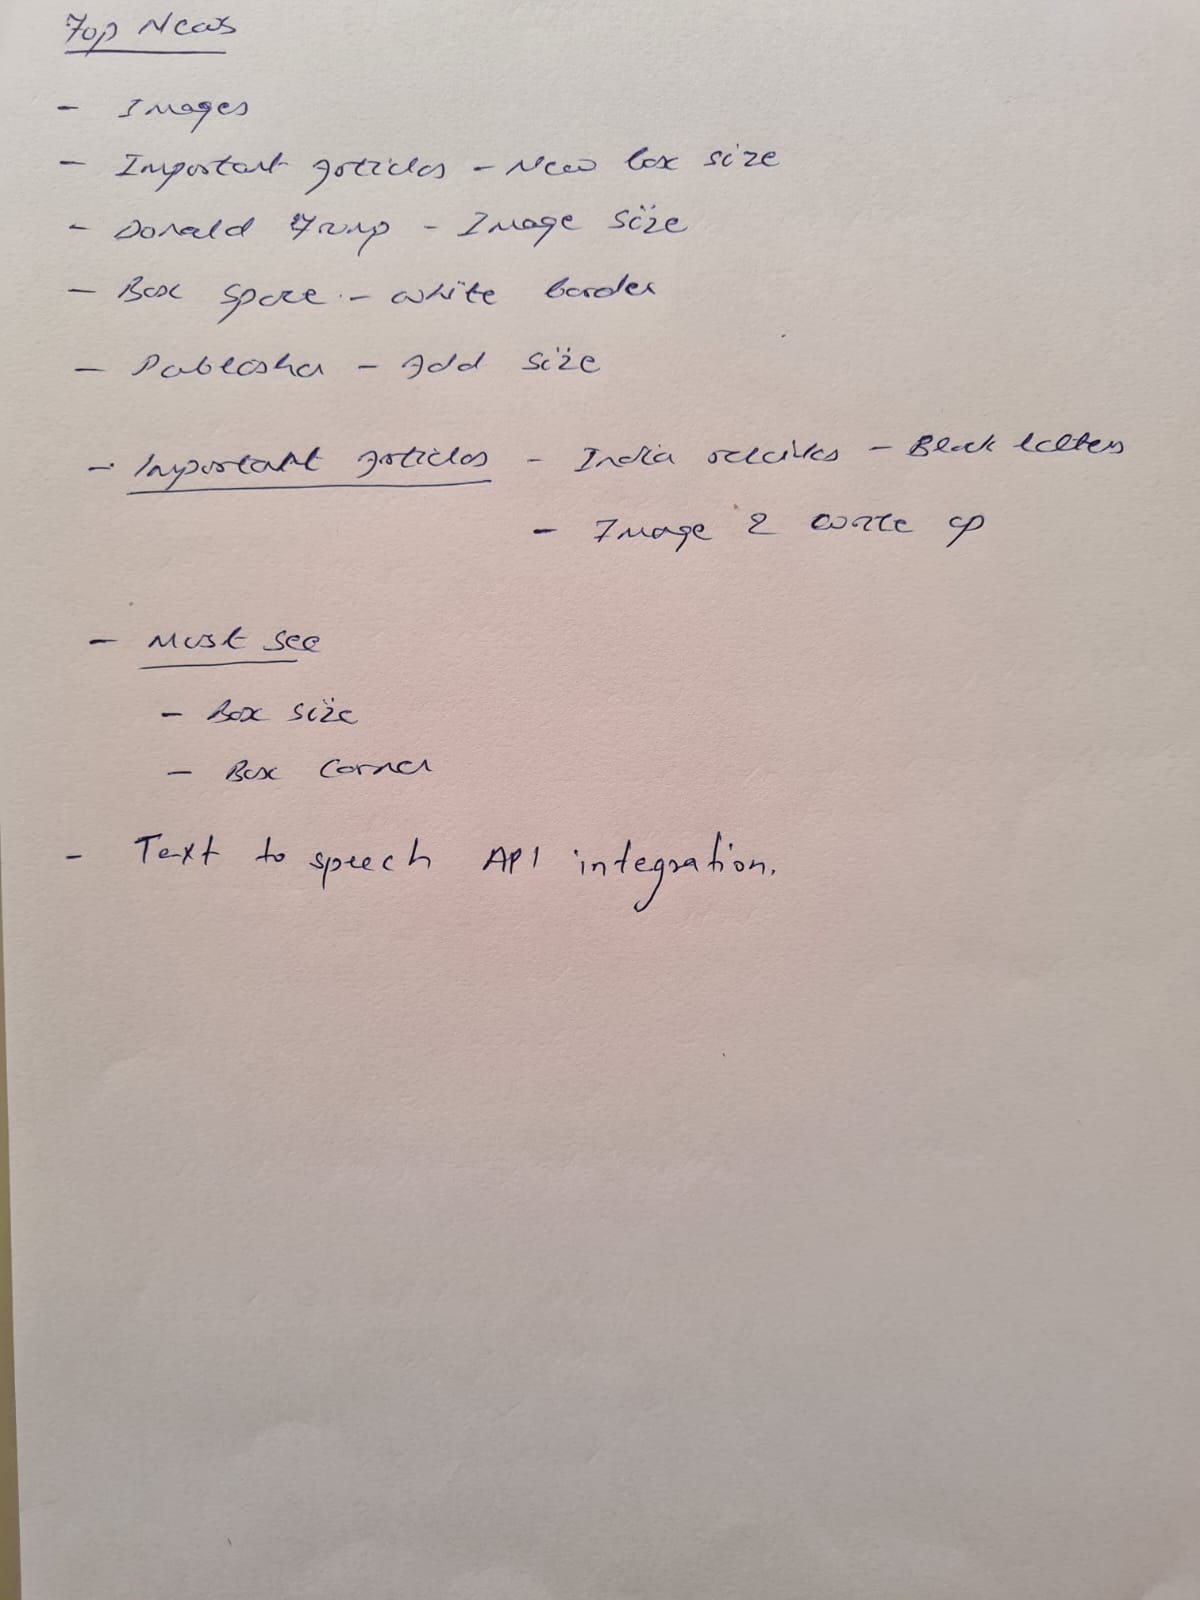 Top News
- Images
- Important Articles - New box size
- Donald Trump - Image size
- Box space - white border
- Publisher - Add size
- Important Articles - India - Black letters
- Image & write up
- Must see
- Box size
- Box corner
- Text to speech API integration.